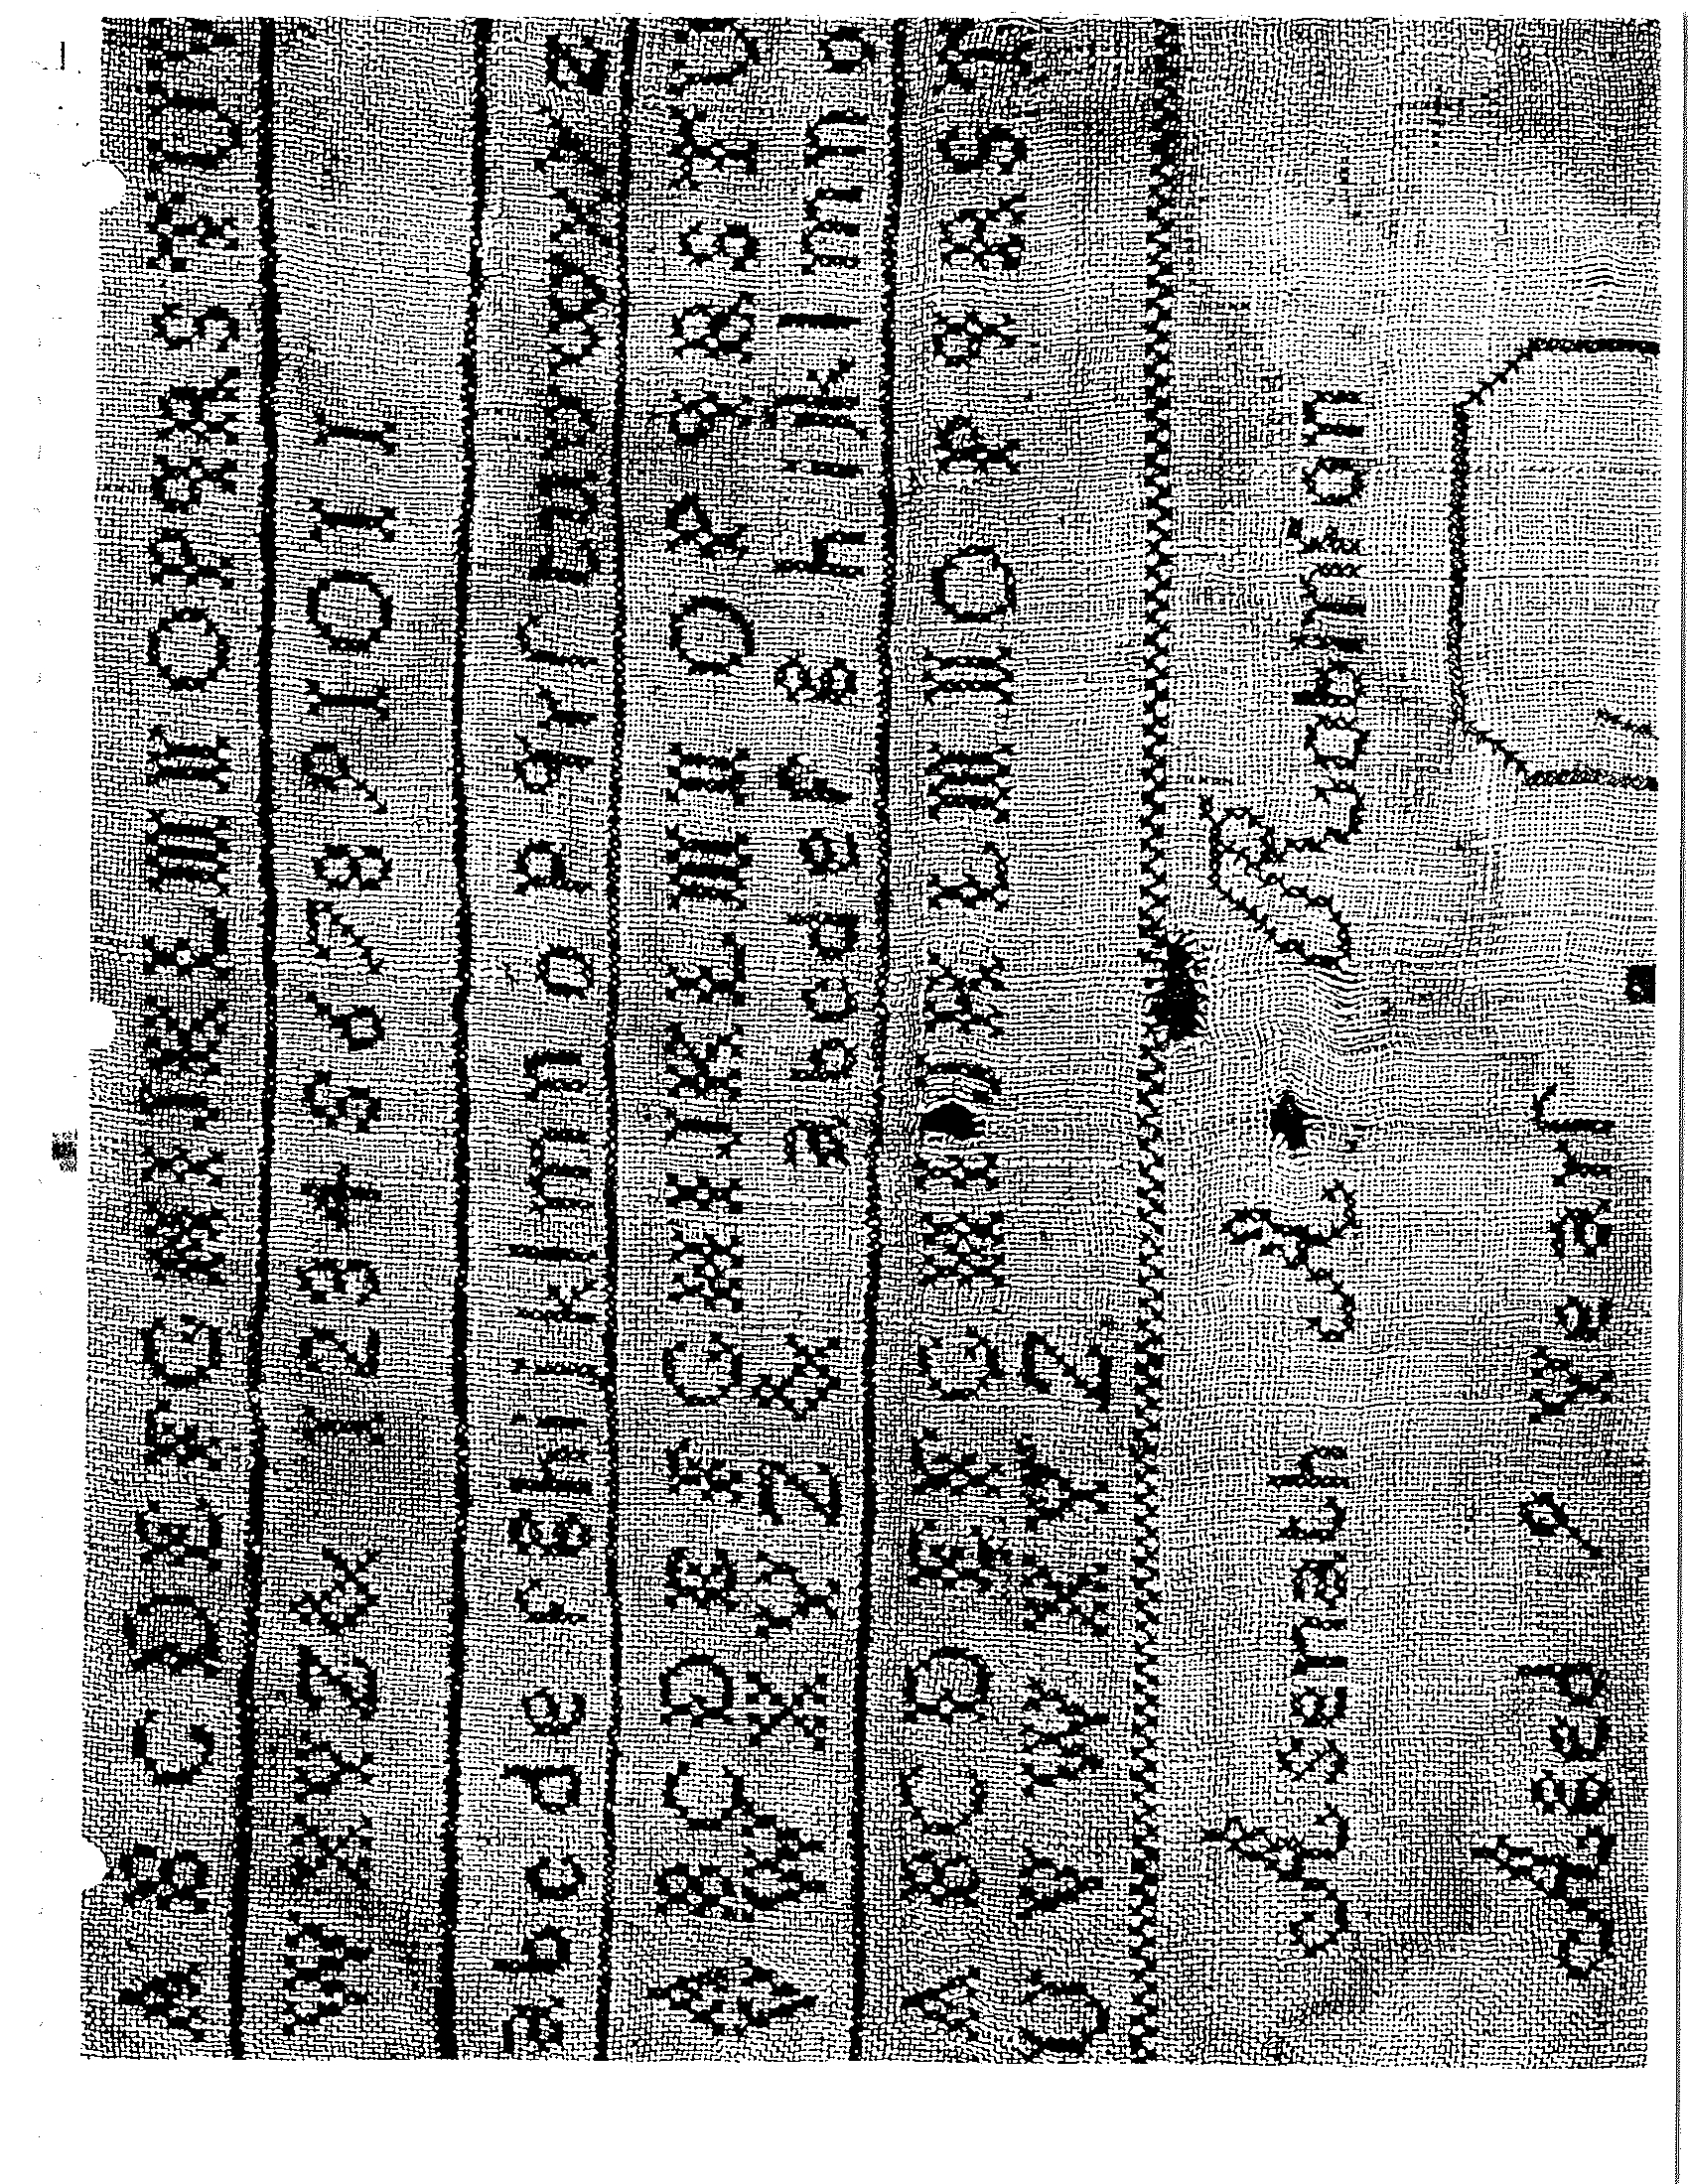 A B C D E F G H I J K L M N O P Q R S T U V
W X Y Z & 1 2 3 4 5 6 7 8 9 10 11
a b c d e f g h i j k l m n o p q r ſ t u v w x y z
A B C D E F G H I J K L M N O P Q R S T U
V W X Y Z & a b c d e f g h i j k l m n o
A B C D E F G H I J K L M N O P Q R S T
U V W X Y Z
Asenath Robinſon
Aged 9 Yearſ